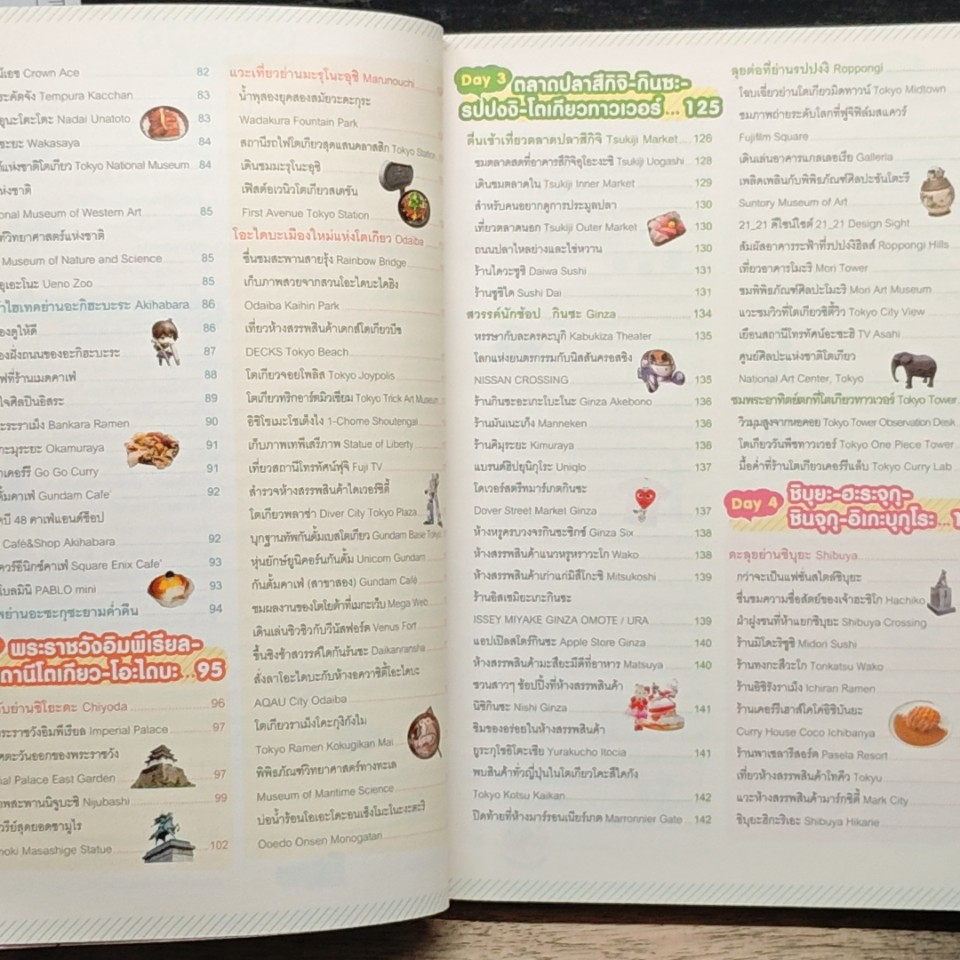 Crown Ace 82
Tempura Kacchan 83
Nadai Unatoto 83
Wakasaya 84
Tokyo National Museum 84
National Museum of Western Art 85
Museum of Nature and Science 85
Ueno Zoo 85
Akihabara 86
86
87
88
89
Bankara Ramen 90
Okamuraya 91
Go Go Curry 91
Gundam Cafe' 92
Café&Shop Akihabara 92
Square Enix Cafe' 93
PABLO mini 93
94
พระราชวังอิมพีเรียล-
โตเกียว-โอะไดบะ...95
Chiyoda 96
Imperial Palace 97
Palace East Garden 97
Nijubashi 99
Masashige Statue 102
แวะเที่ยวย่านมะรุโนะอุชิ Marunouchi
น้ำพุสองยุคสองสมัยวะดะกุระ
Wadakura Fountain Park
สถานีรถไฟโตเกียวสุดแสนคลาสสิก Tokyo Station
เดินชมมะรุโนะอุชิ
เฟิสต์อเวนิวโตเกียวสเตชัน
First Avenue Tokyo Station
โอะไดบะเมืองใหม่แห่งโตเกียว Odaiba
ชื่นชมสะพานสายรุ้ง Rainbow Bridge
เก็บภาพสวยจากสวนโอะไดบะไคฮิง
Odaiba Kaihin Park
เที่ยวห้างสรรพสินค้าเดกส์โตเกียวบีช
DECKS Tokyo Beach
โตเกียวจอยโพลิส Tokyo Joypolis
โตเกียวทริกอาร์ตมิวเซียม Tokyo Trick Art Museum
อิชิโชเมะโชเต็งไง 1-Chome Shoutengai
เก็บภาพเทพีเสรีภาพ Statue of Liberty
เที่ยวสถานีโทรทัศน์ฟุจิ Fuji TV
สำรวจห้างสรรพสินค้าไดเวอร์ซิตี้
โตเกียวพลาซ่า Diver City Tokyo Plaza
บุกฐานทัพกันดั้มเบสโตเกียว Gundam Base Tokyo
หุ่นยักษ์ยูนิคอร์นกันดั้ม Unicorn Gundam
กันดั้มคาเฟ่ (สาขาสอง) Gundam Café
ชมผลงานของโตโยต้าที่เมกะเว็บ Mega Web
เดินเล่นชิวชิวกับวีนัสฟอร์ต Venus Fort
ขึ้นชิงช้าสวรรค์ไดกันรันชะ Daikanransha
ลั้งลาโอะไดบะกับห้างอควาซิตี้โอะไดบะ
AQAU City Odaiba
โตเกียวราเม็งโคะกุงิกังไม
Tokyo Ramen Kokugikan Mai
พิพิธภัณฑ์วิทยาศาสตร์ทางทะเล
Museum of Maritime Science
บ่อน้ำร้อนโอเอะโดะอนเซ็งโมะโนะงะตะริ
Ooedo Onsen Monogatari
Day 3 ตลาดปลาสึกิจิ-กินซะ-
รปปงงิ-โตเกียวทาวเวอร์...125
ตื่นเช้าเที่ยวตลาดปลาสึกิจิ Tsukiji Market 126
ชมตลาดสดที่อาคารสึกิจิอุโอะงะชิ Tsukiji Uogashi 128
เดินชมตลาดใน Tsukiji Inner Market 129
สำหรับคนอยากดูการประมูลปลา 130
เที่ยวตลาดนอก Tsukiji Outer Market 130
ถนนปลาไหลย่างและไข่หวาน 130
ร้านไดวะซูชิ Daiwa Sushi 131
ร้านซูชิได Sushi Dai 131
สวรรค์นักช้อป กินซะ Ginza 134
หรรษากับละครคะบุกิ Kabukiza Theater 135
โลกแห่งยนตรกรรมกับนิสสันครอสซิง
NISSAN CROSSING 135
ร้านกินซะอะเกะโบะโนะ Ginza Akebono 136
ร้านมันเนะเก็ง Manneken 136
ร้านคิมุระยะ Kimuraya 136
แบรนด์ฮิปยูนิกุโระ Uniqlo 137
โดเวอร์สตรีทมาร์เกตกินซะ
Dover Street Market Ginza 137
ห้างหรูครบวงจรกินซะซิกซ์ Ginza Six 138
ห้างสรรพสินค้าแนวหรูหราวะโก Wako 138
ห้างสรรพสินค้าเก่าแก่มิสึโกะชิ Mitsukoshi 139
ร้านอิสเซมิยะเกะกินซะ
ISSEY MIYAKE GINZA OMOTE / URA 139
แอปเปิลสโตร์กินซะ Apple Store Ginza 140
ห้างสรรพสินค้ามะสึยะมีดีที่อาหาร Matsuya 140
ชวนสาวๆ ช้อปปิ้งที่ห้างสรรพสินค้า
นิชิกินซะ Nishi Ginza 141
ชิมของอร่อยในห้างสรรพสินค้า
ยูระกุโชอิโตะเชีย Yurakucho Itocia 141
พบสินค้าทั่วญี่ปุ่นในโตเกียวโคะสึไคกัง
Tokyo Kotsu Kaikan 142
ปิดท้ายที่ห้างมาร์รอนเนียร์เกต Marronnier Gate 142
ลุยต่อที่ย่านรปปงงิ Roppongi
โฉบเฉี่ยวย่านโตเกียวมิดทาวน์ Tokyo Midtown
ชมภาพถ่ายระดับโลกที่ฟูจิฟิล์มสแควร์
Fujifilm Square
เดินเล่นอาคารแกลเลอเรีย Galleria
เพลิดเพลินกับพิพิธภัณฑ์ศิลปะซันโตะรี
Suntory Museum of Art
21_21 ดีไซน์ไซต์ 21_21 Design Sight
สัมผัสอาคารระฟ้าที่รปปงงิฮิลส์ Roppongi Hills
เที่ยวอาคารโมะริ Mori Tower
ชมพิพิธภัณฑ์ศิลปะโมะริ Mori Art Museum
แวะชมวิวที่โตเกียวซิตี้วิว Tokyo City View
เยือนสถานีโทรทัศน์อะซะฮิ TV Asahi
ศูนย์ศิลปะแห่งชาติโตเกียว
National Art Center, Tokyo
ชมพระอาทิตย์ตกที่โตเกียวทาวเวอร์ Tokyo Tower
วิวมุมสูงจากหอคอย Tokyo Tower Observation Desk
โตเกียววันพีซทาวเวอร์ Tokyo One Piece Tower
มื้อค่ำที่ร้านโตเกียวเคอร์รีแล็บ Tokyo Curry Lab
Day 4 ชิบุยะ-ฮะระจุกุ-
ชินจุกุ-อิเกะบุกุโระ
ตะลุยย่านชิบุยะ Shibuya
กว่าจะเป็นแฟชั่นสไตล์ชิบุยะ
ชื่นชมความซื่อสัตย์ของเจ้าฮะชิโก Hachiko
ฝ่าฝูงชนที่ห้าแยกชิบุยะ Shibuya Crossing
ร้านมิโดะริซูชิ Midori Sushi
ร้านทงกะสึวะโก Tonkatsu Wako
ร้านอิชิรังราเม็ง Ichiran Ramen
ร้านเคอร์รีเฮาส์โคโค่อิชิบันยะ
Curry House Coco Ichibanya
ร้านพาเซลารีสอร์ต Pasela Resort
เที่ยวห้างสรรพสินค้าโทคิว Tokyu
แวะห้างสรรพสินค้ามาร์กซิตี้ Mark City
ชิบุยะฮิกะริเอะ Shibuya Hikarie